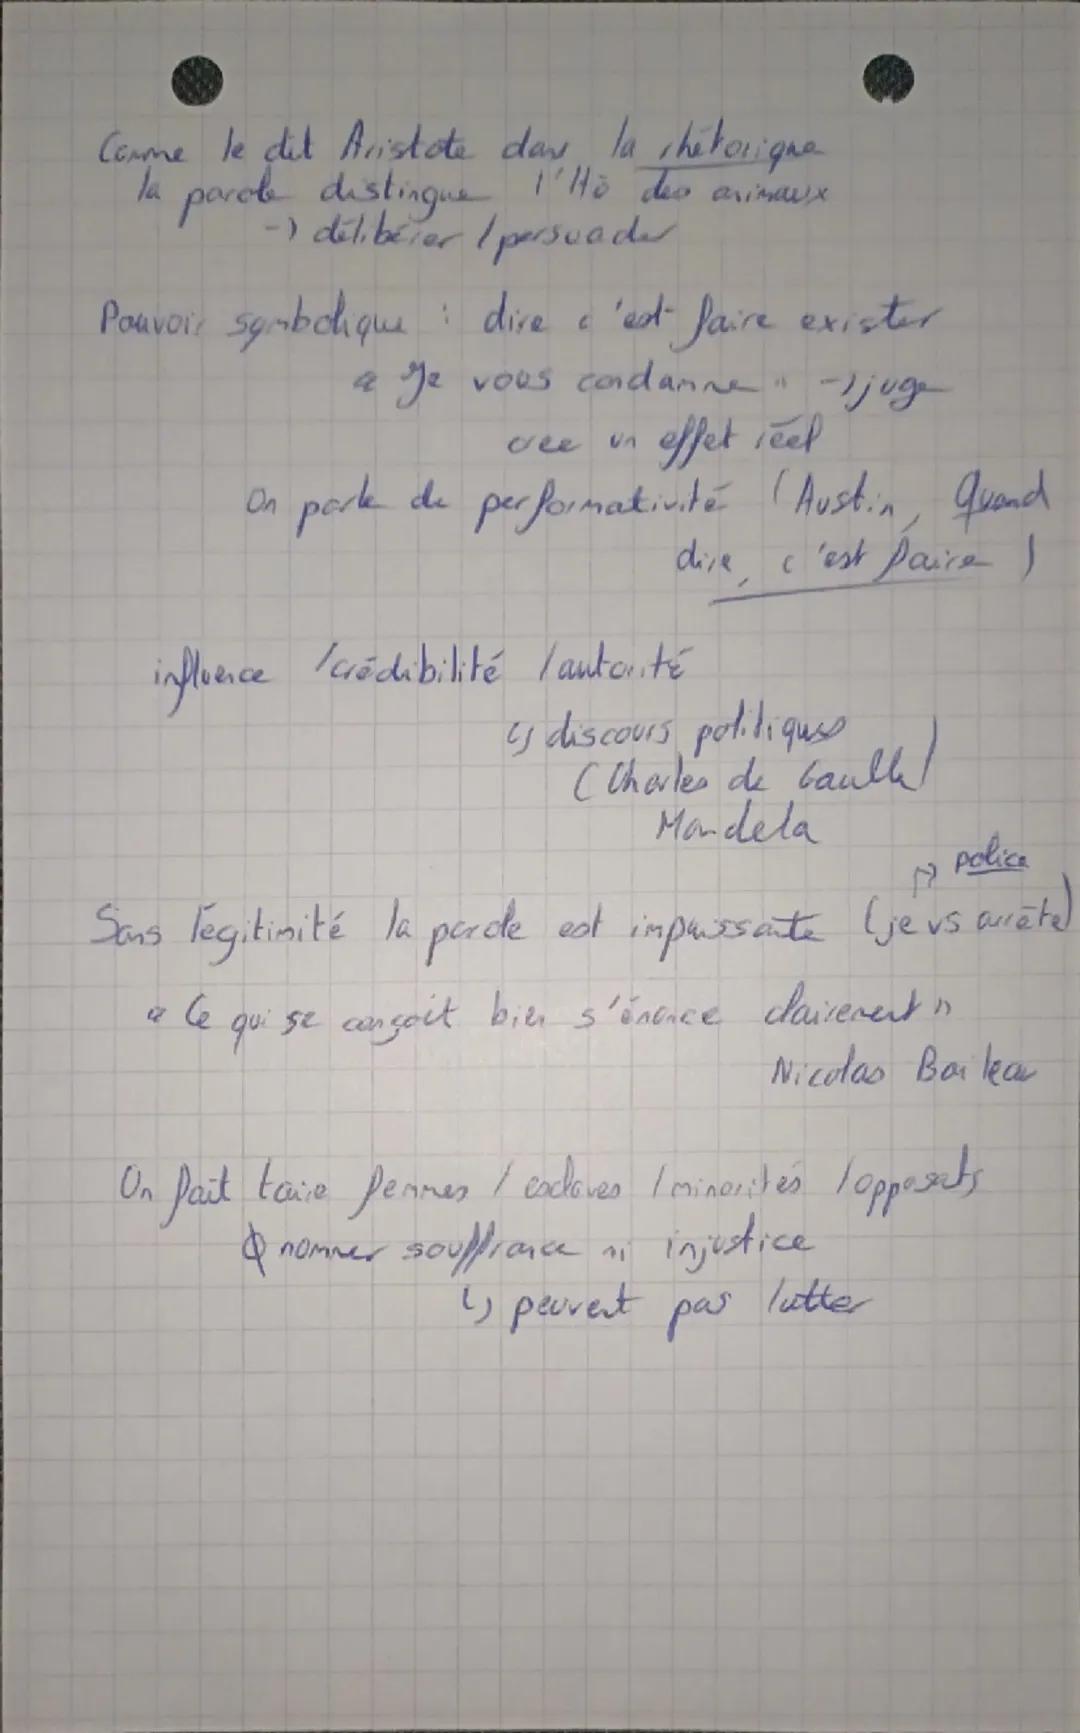 Comme le dit Aristote dans la rhétorique
la parole distingue l'Hô des animaux
-> délibérer / persuader
Pouvoir symbolique : dire c'est faire exister
« Je vous condamne » -> juge
crée un effet réel
On parle de performativité (Austin, Quand
dire, c'est faire)
influence / crédibilité / autorité
↳ discours politiques
(Charles de Gaulle /
Mandela
↱ police
Sans légitimité la parole est impuissante (je vs arrête)
« Ce qui se conçoit bien s'énonce clairement »
Nicolas Boileau
On fait taire femmes / esclaves / minorités / opposants
∅ nommer souffrance ni injustice
↳ peuvent pas lutter